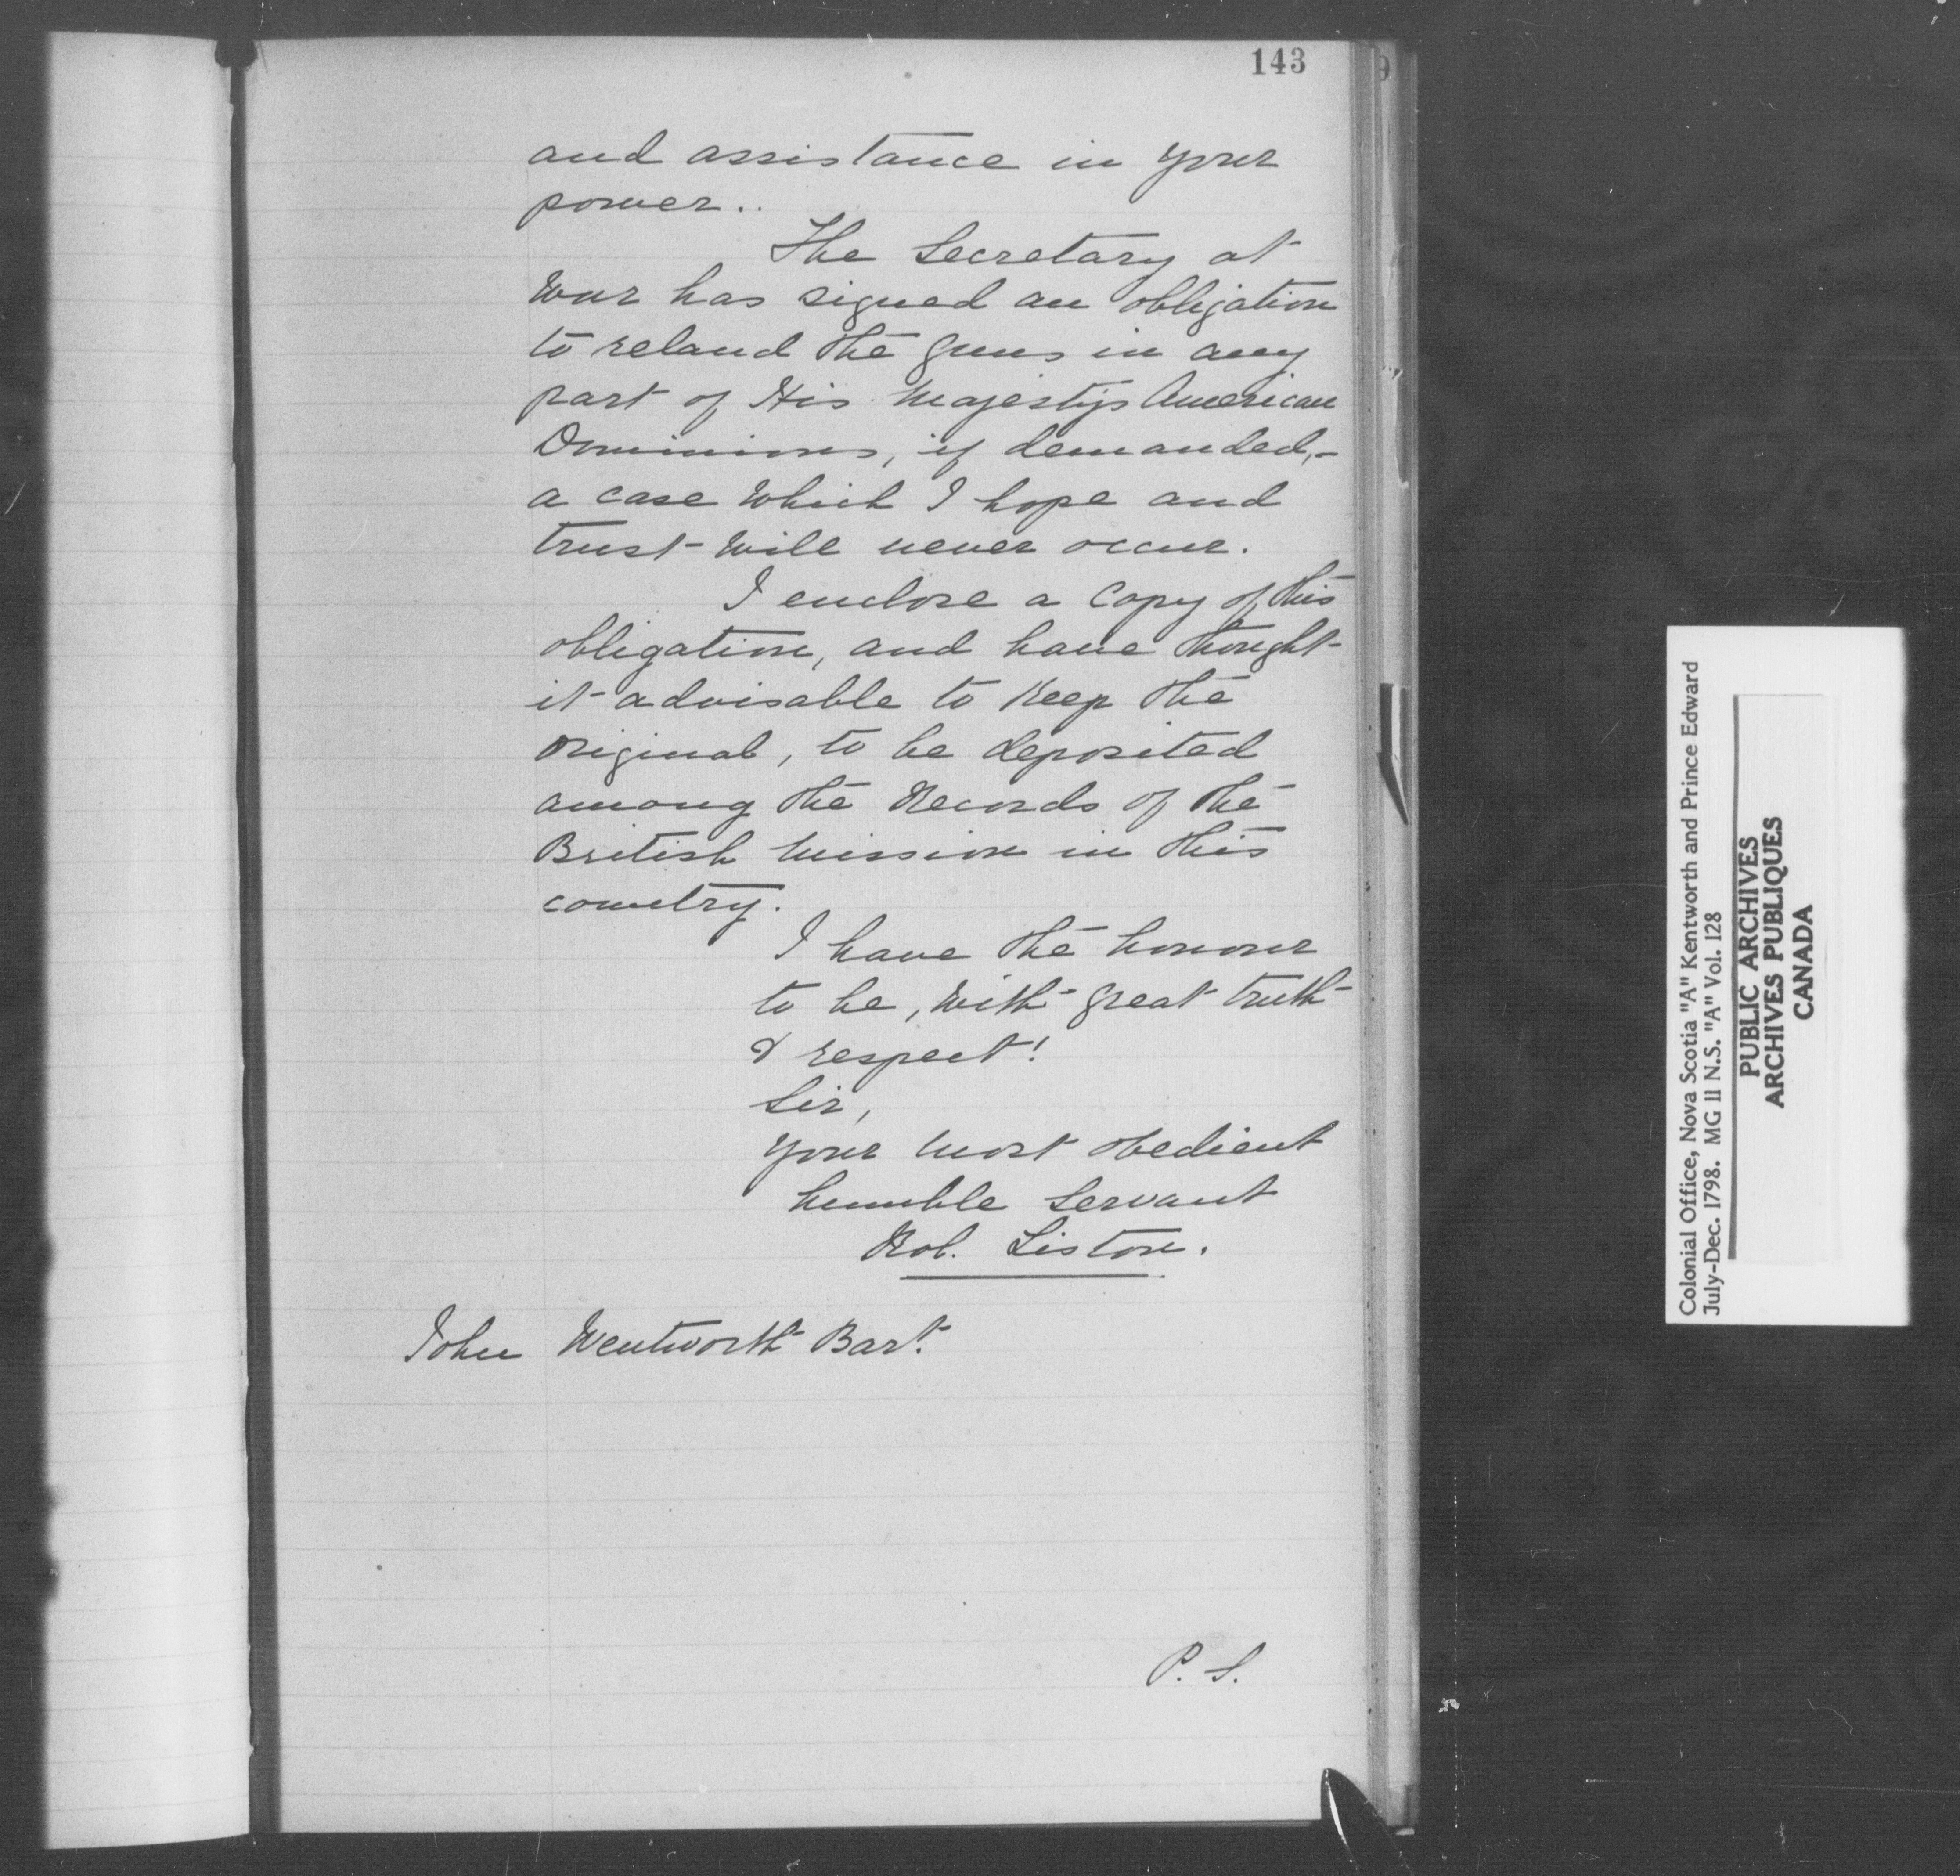 143
and assistance in your
power..
The Secretary at
War has signed an obligation
to reland the guns in any
part of His Majesty's American
Dominions, if demanded,-
a case which I hope and
trust will never occur.
I enclose a Copy of this
obligation, and have thought
it advisable to keep the
original, to be deposited
among the Records of the
British Mission in this
country.
I have the honour
to be, with great truth
& respect!
Sir,
Your most obedient
humble Servant
Rob. Liston.
John Wentworth Bart.
P. S.
Colonial Office, Nova Scotia "A" Kentworth and Prince Edward
July-Dec. 1798. MG 11 N.S. "A" Vol. 128
PUBLIC ARCHIVES
ARCHIVES PUBLIQUES
CANADA